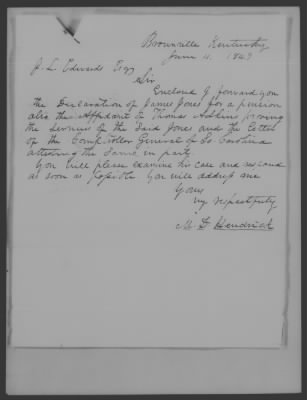 Brownsville Kentucky
June 11. 1849
J. L. Edwards Esqr
Sir
Enclosed I forward you
the Declaration of James Jones for a pension
also the Affidavit of Thomas proving
the services of the Said Jones and the Letter
of the Comptroller General of So Carolina
attesting the Same in part
You will please examine the case and respond
as soon as Possible You will address me
Yours
very respectfully
M D Hendrick